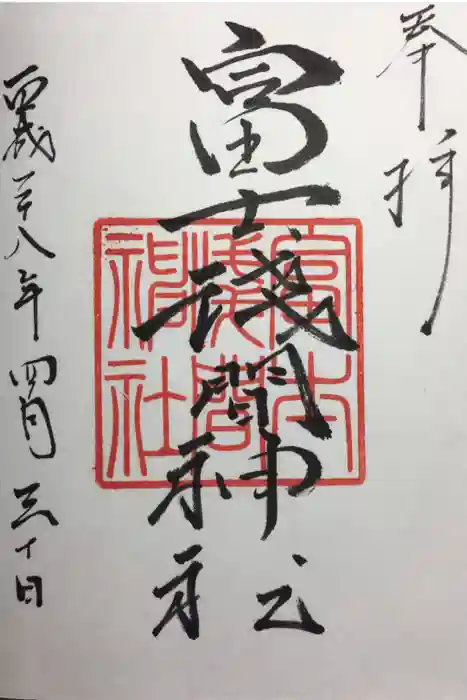 奉拝
富士淺間神社
富士
淺間
神社
平成二十八年 四月 三十日